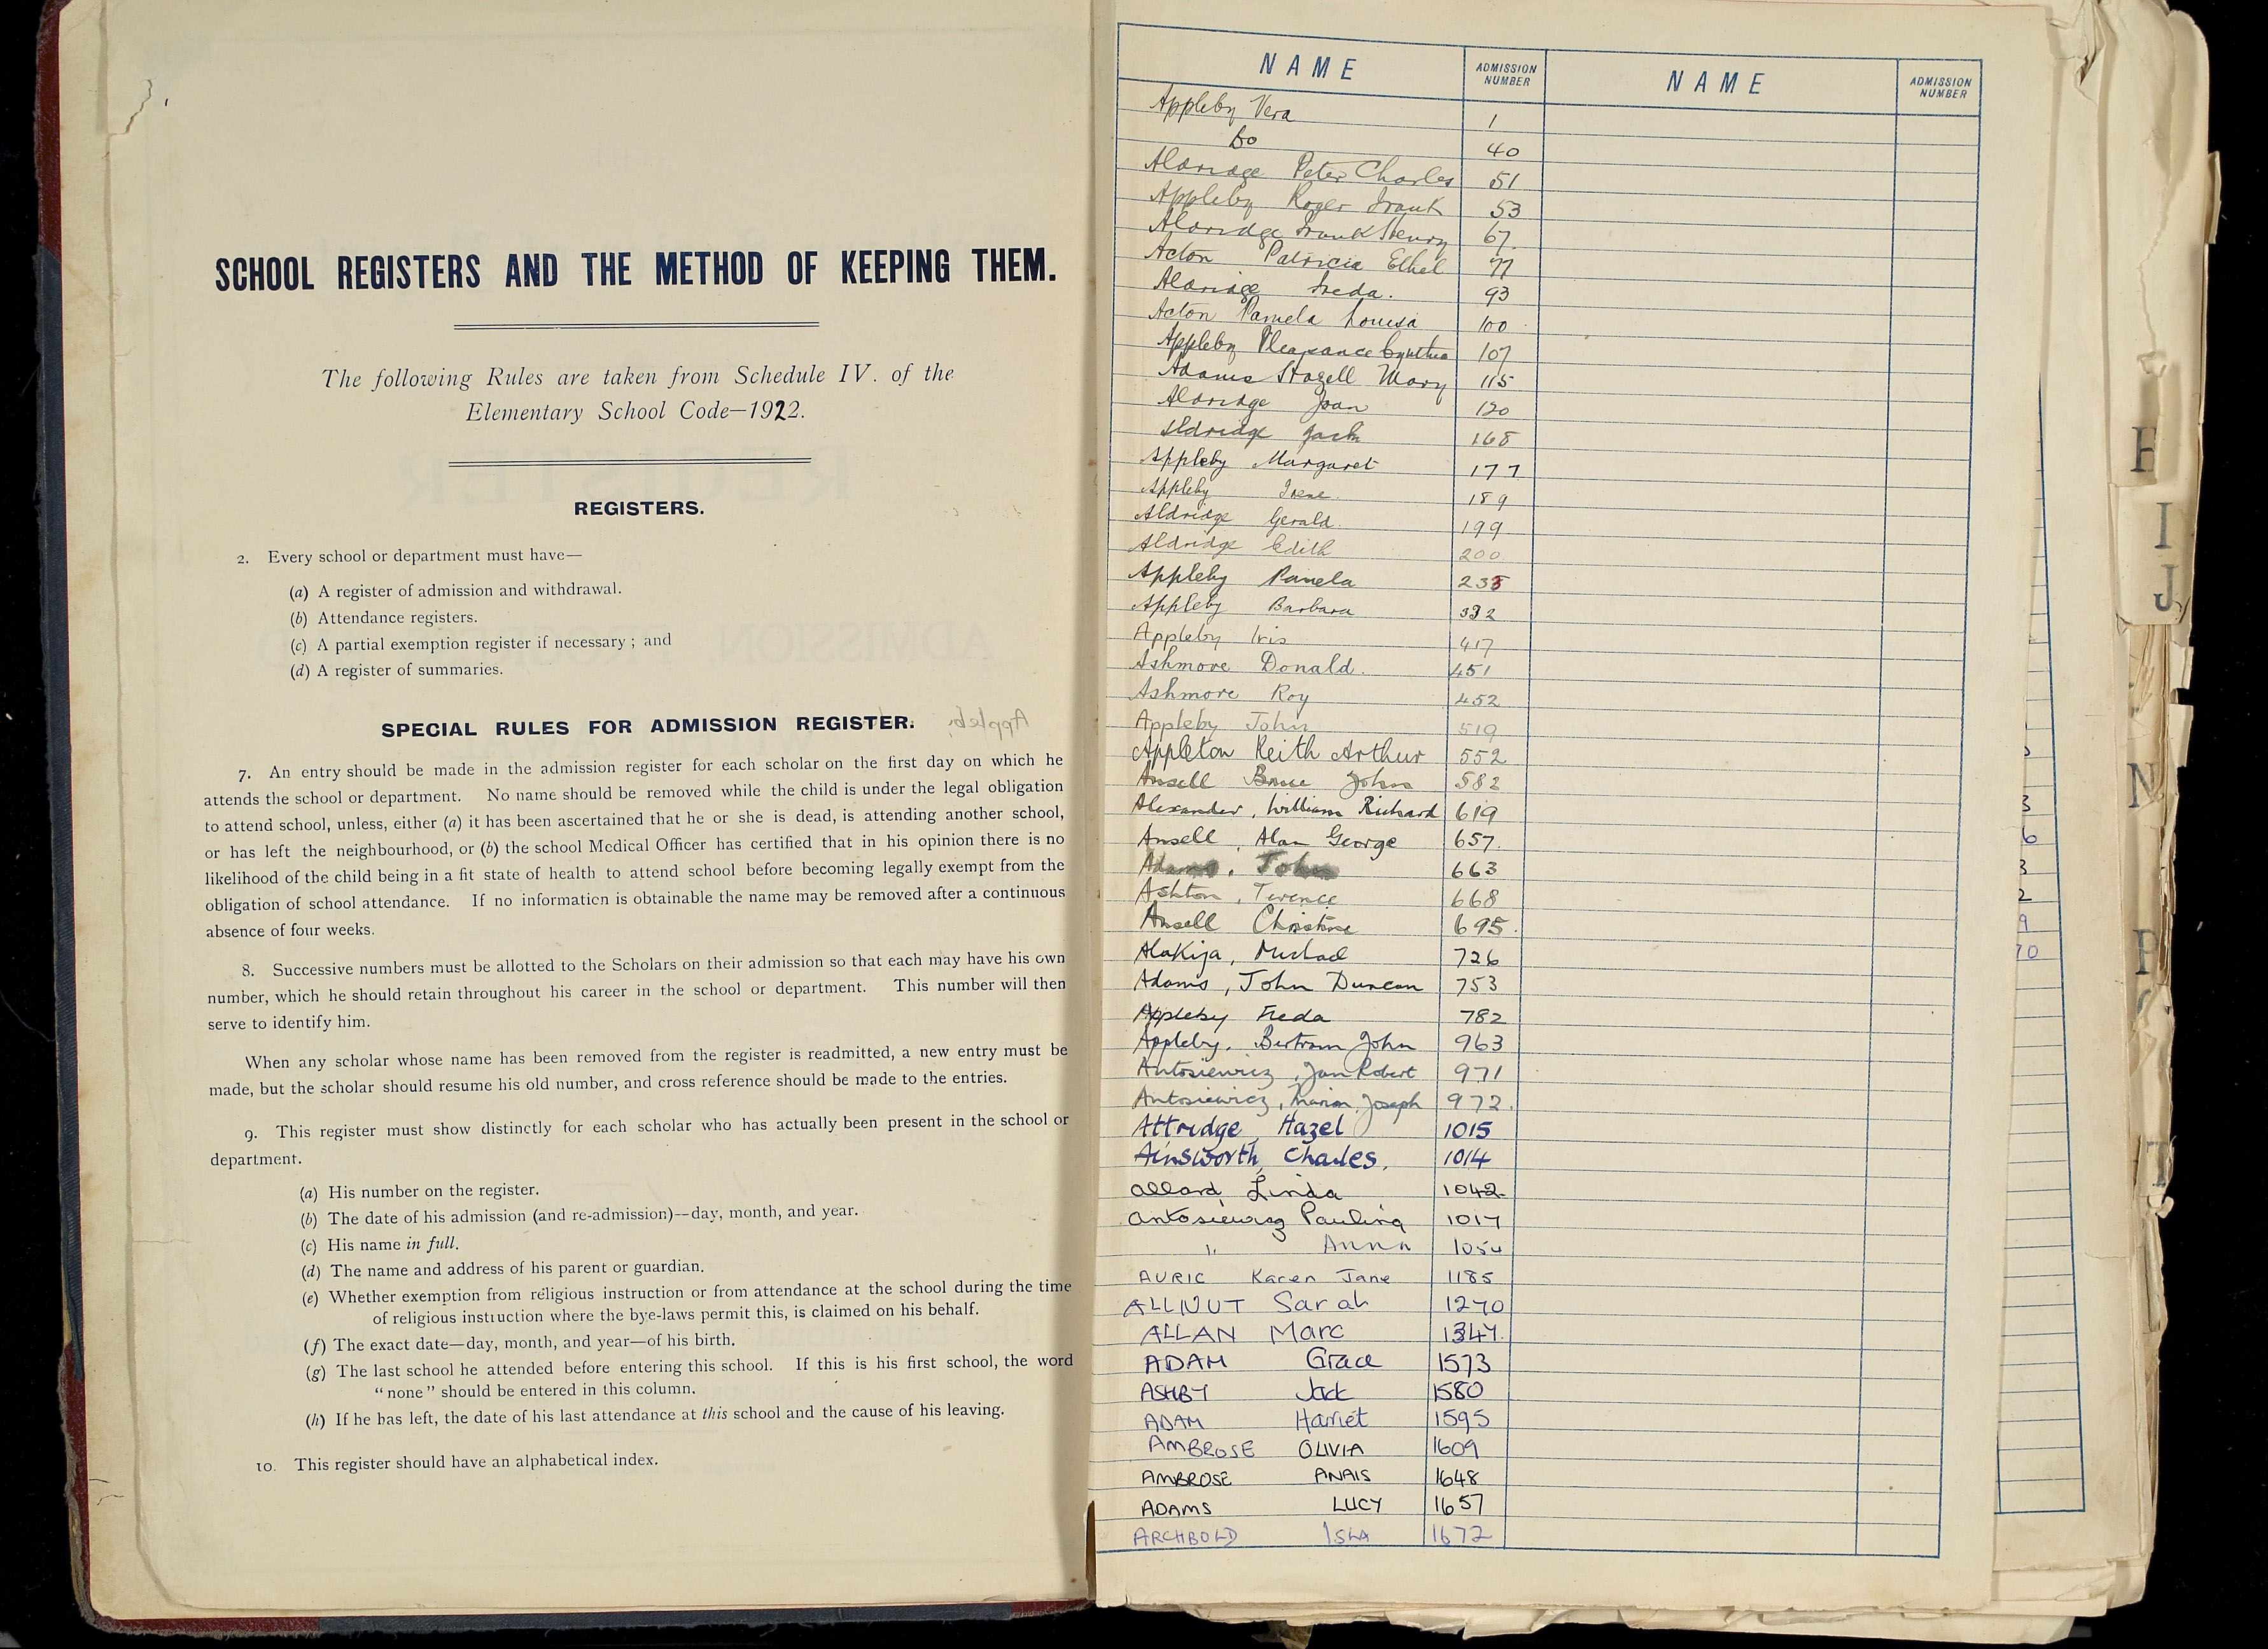 SCHOOL REGISTERS AND THE METHOD OF KEEPING THEM.
The following Rules are taken from Schedule IV. of the
Elementary School Code—1922.
REGISTERS.
2. Every school or department must have—
(a) A register of admission and withdrawal.
(b) Attendance registers.
(c) A partial exemption register if necessary ; and
(d) A register of summaries.
SPECIAL RULES FOR ADMISSION REGISTER.
7. An entry should be made in the admission register for each scholar on the first day on which he
attends the school or department. No name should be removed while the child is under the legal obligation
to attend school, unless, either (a) it has been ascertained that he or she is dead, is attending another school,
or has left the neighbourhood, or (b) the school Medical Officer has certified that in his opinion there is no
likelihood of the child being in a fit state of health to attend school before becoming legally exempt from the
obligation of school attendance. If no information is obtainable the name may be removed after a continuous
absence of four weeks.
8. Successive numbers must be allotted to the Scholars on their admission so that each may have his own
number, which he should retain throughout his career in the school or department. This number will then
serve to identify him.
When any scholar whose name has been removed from the register is readmitted, a new entry must be
made, but the scholar should resume his old number, and cross reference should be made to the entries.
9. This register must show distinctly for each scholar who has actually been present in the school or
department.
(a) His number on the register.
(b) The date of his admission (and re-admission)—day, month, and year.
(c) His name in full.
(d) The name and address of his parent or guardian.
(e) Whether exemption from religious instruction or from attendance at the school during the time
of religious instruction where the bye-laws permit this, is claimed on his behalf.
(f) The exact date—day, month, and year—of his birth.
(g) The last school he attended before entering this school. If this is his first school, the word
“none” should be entered in this column.
(h) If he has left, the date of his last attendance at this school and the cause of his leaving.
10. This register should have an alphabetical index.
NAME ADMISSION NUMBER NAME ADMISSION NUMBER
Appleby Vera 1
Do 40
Aldridge Peter Charles 51
Appleby Roger Frank 53
Aldridge Frank Henry 67
Acton Patricia Ethel 77
Aldridge Freda. 93
Acton Pamela Louisa 100
Appleby Pleasance Cynthia 107
Adams Hazell Mary 115
Aldridge Joan 120
Aldridge Jack 168
Appleby Margaret 177
Appleby Irene 189
Aldridge Gerald 199
Aldridge Edith 200
Appleby Pamela
Appleby Barbara 392
Appleby Iris 417
Ashmore Donald. 451
Ashmore Roy 452
Appleby John 519
Appleton Keith Arthur 552
Ansell Bruce John 582
Alexander, William Richard 619
Ansell, Alan George 657.
Adams, John 663
Ashton, Terence 668
Ansell Christine 695.
Alakija, Michael 726
Adams, John Duncan 753
Appleby Freda 782
Appleby, Bertram John 963
Antosiewicz, Jan Robert 971
Antosiewicz, Marion Joseph 972.
Attridge Hazel 1015
Ainsworth, Charles, 1014
Allard, Linda 1042
Antosiewicz Paulina 1017
" Anna 1054
AURIC Karen Jane 1185
ALLNUT Sarah 1270
ALLAN Marc 1347.
ADAM Grace 1573
ASHBY Jack 1580
ADAM Harriet 1595
AMBROSE OLIVIA 1609
AMBROSE ANAIS 1648
ADAMS LUCY 1657
ARCHBOLD ISLA 1672
I
J
N
P
T